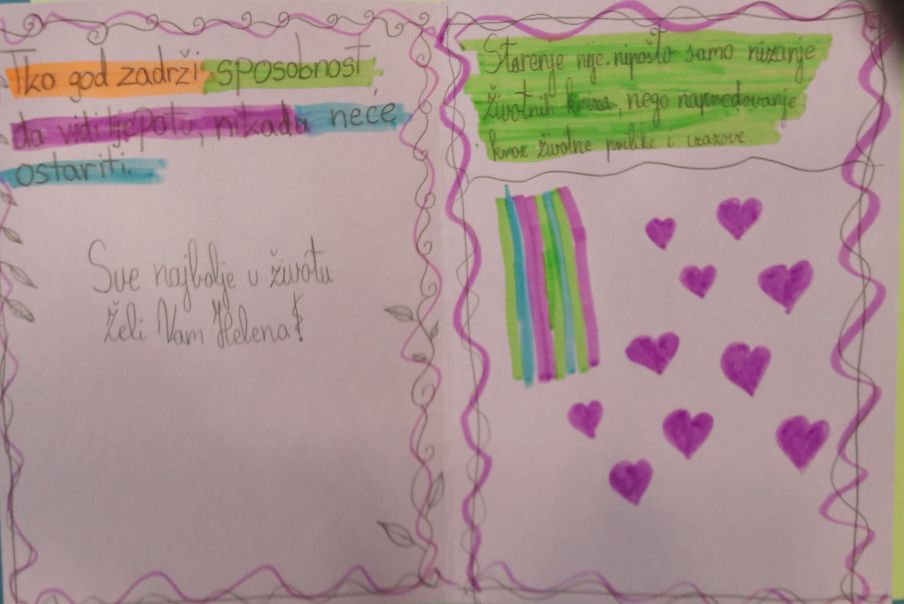 Tko god zadrži sposobnost
da vidi ljepotu, nikada neće
ostariti.
Sve najbolje u životu
želi Vam Helena!
Starenje nije nipošto samo nizanje
životnih kriza, nego napredovanje
kroz životne prilike i izazove.